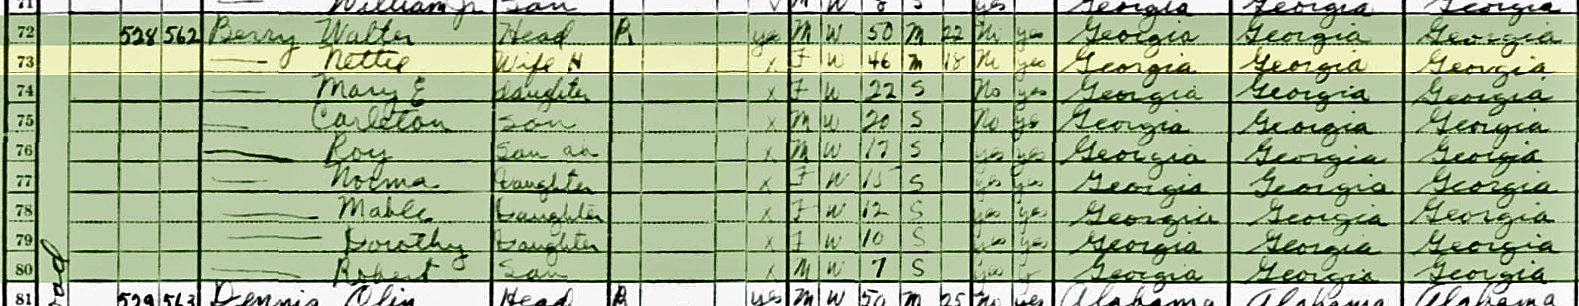 71 William Jr Son M W 8 S yes Georgia Georgia Georgia
72 528 562 Berry Walter Head R yes M W 50 M 22 No yes Georgia Georgia Georgia
73 — Nettie Wife H x F W 46 M 18 No yes Georgia Georgia Georgia
74 — Mary E daughter x F W 22 S No yes Georgia Georgia Georgia
75 — Carleton Son x M W 20 S No yes Georgia Georgia Georgia
76 — Roy Son x M W 17 S yes yes Georgia Georgia Georgia
77 — Norma Daughter x F W 15 S yes yes Georgia Georgia Georgia
78 — Mable Daughter x F W 12 S yes yes Georgia Georgia Georgia
79 — Dorothy Daughter x F W 10 S yes yes Georgia Georgia Georgia
80 — Robert Son x M W 7 S yes Georgia Georgia Georgia
81 529 563 Dennis Olin Head R yes M W 50 M 25 No yes Alabama Alabama Alabama